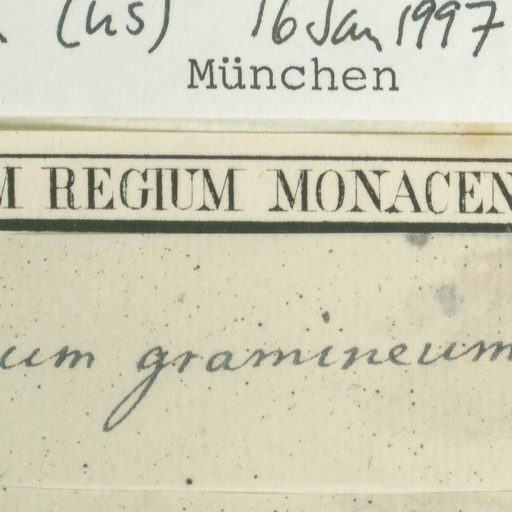 (US) 16 Jan 1997
München
M REGIUM MONACEN
um gramineum